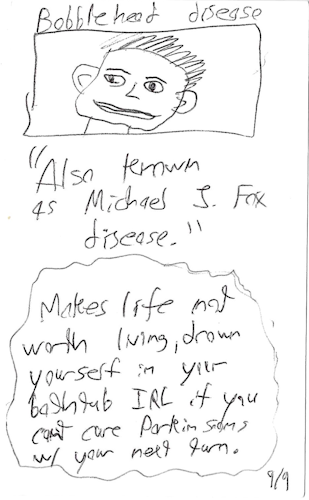 Bobblehead disease
"Also
as Michael J. Fox
disease."
Makes life not
worth living, drown
yourself in your
bathtub IRL if you
cant cure Parkinsions
w/ your next turn.
9/9